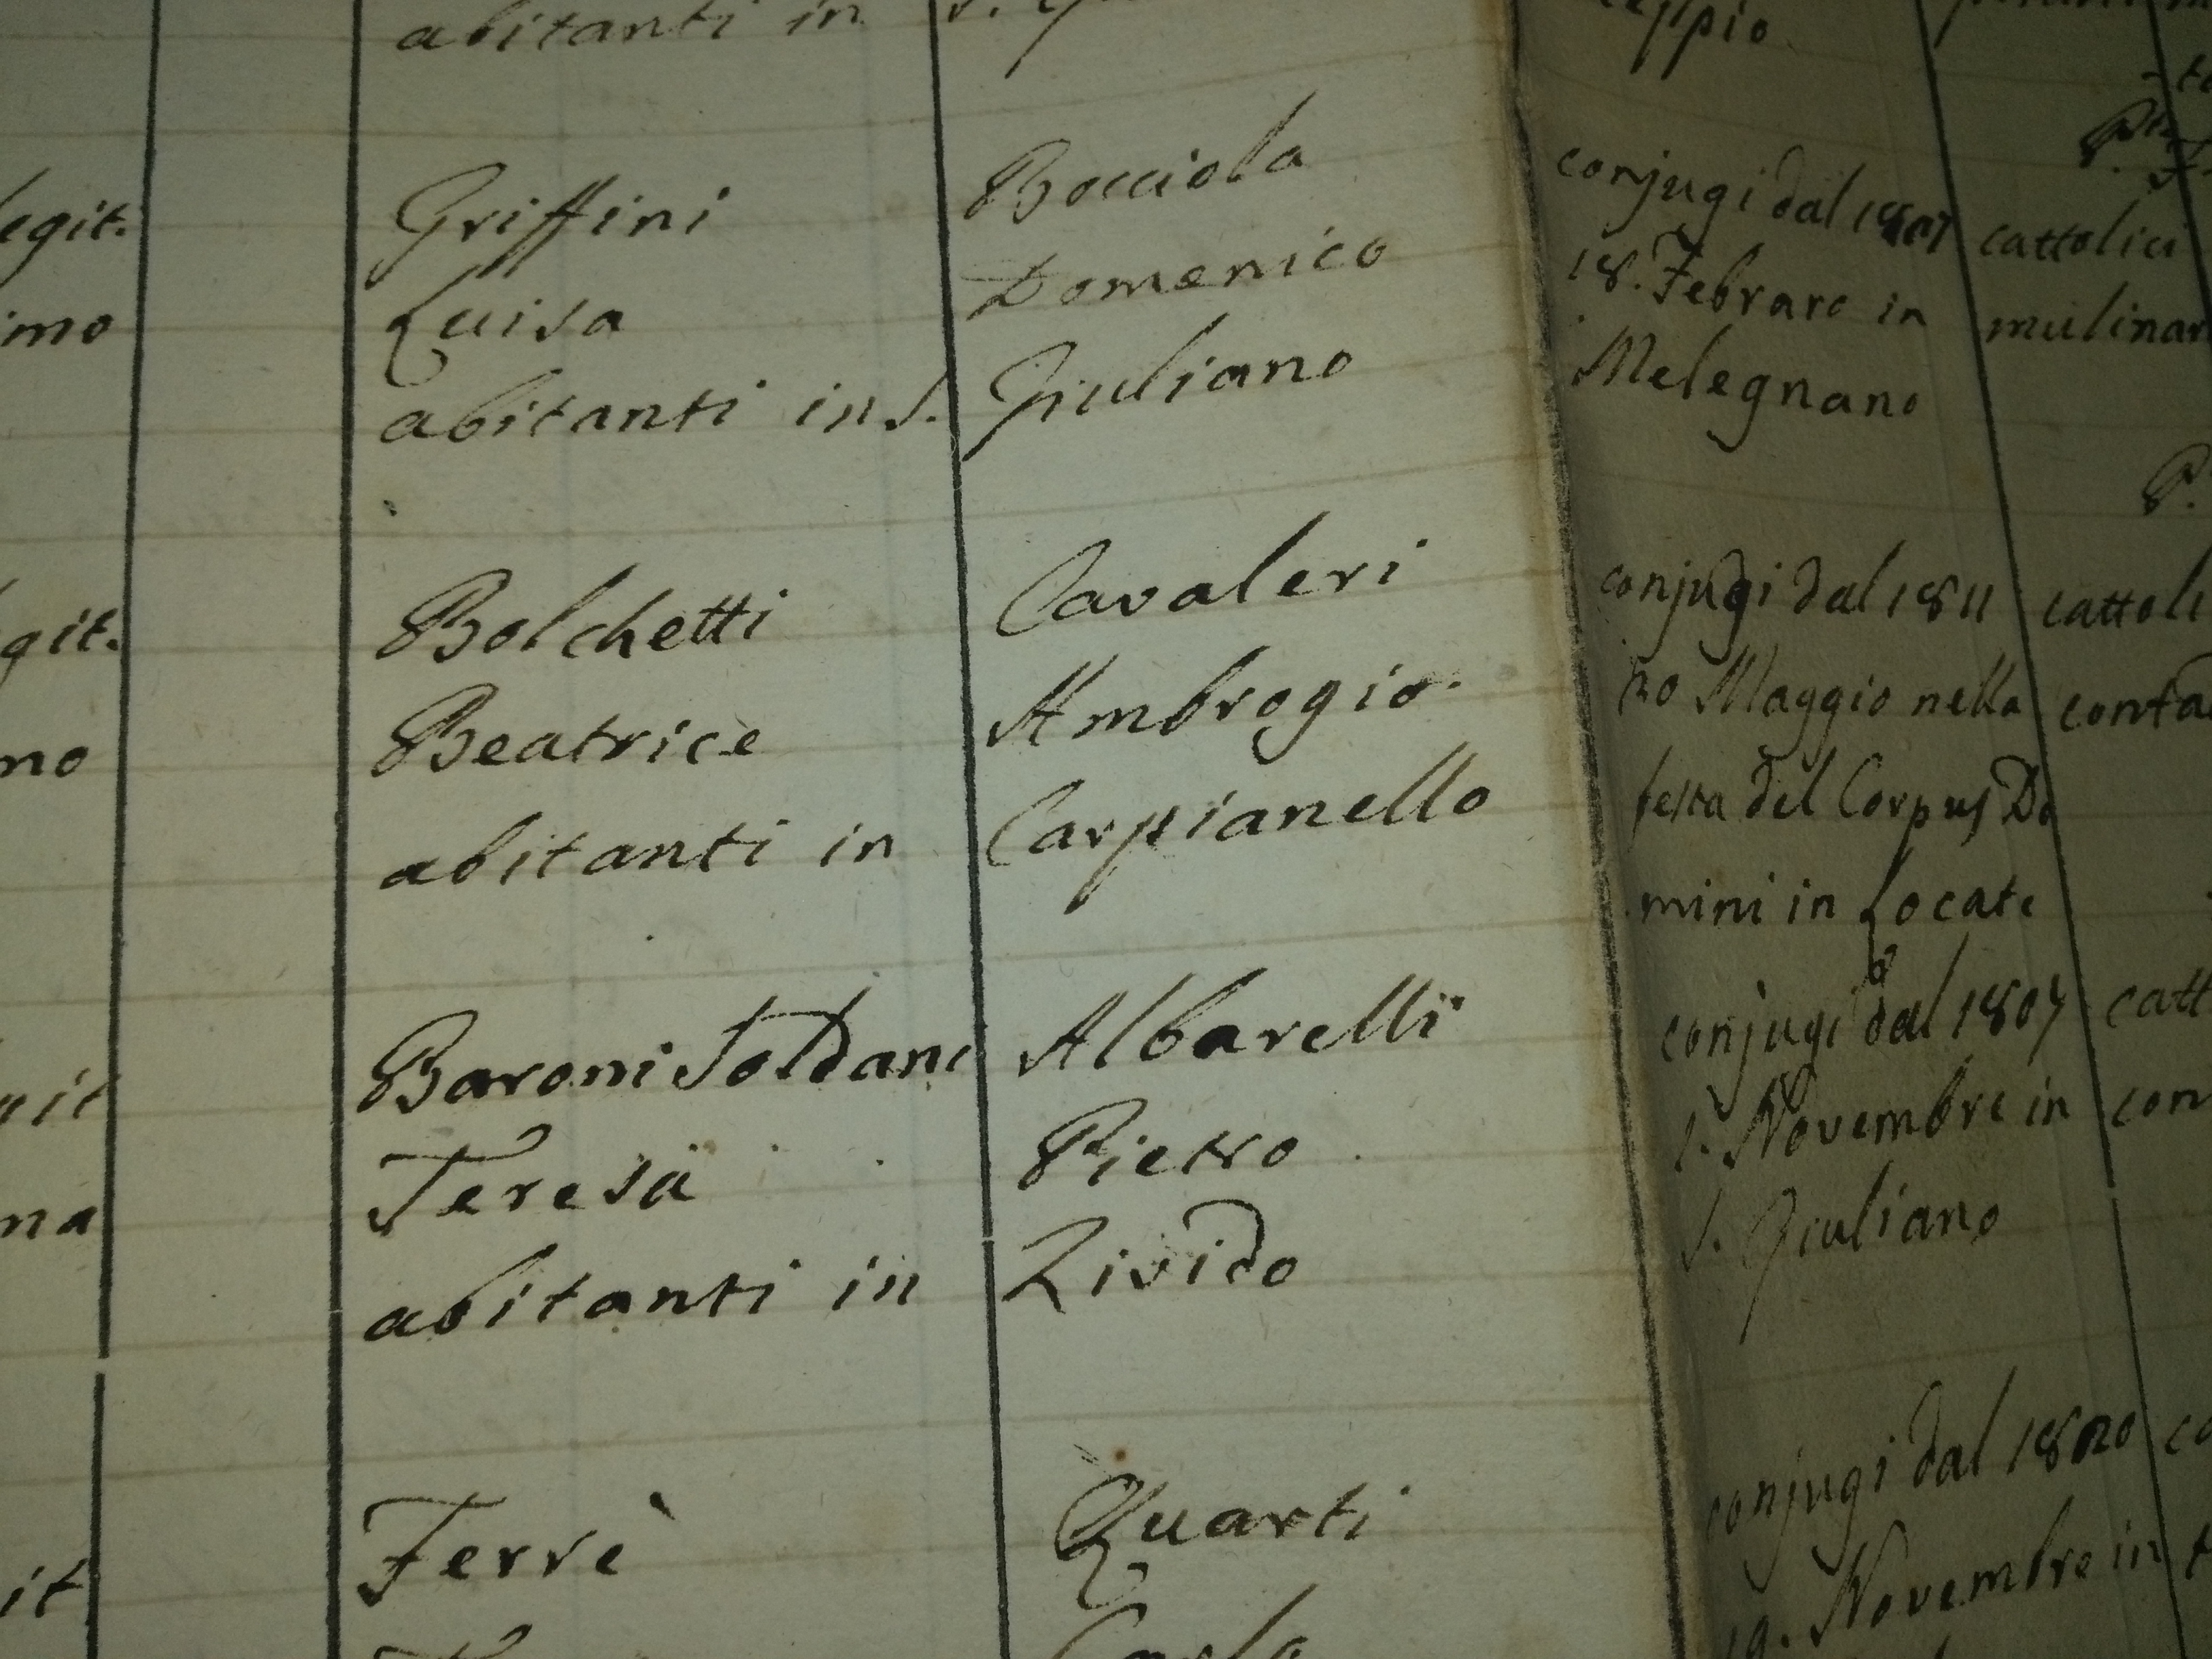 abitanti in S.
egit. Griffini Bocciola conjugi dal 1807 cattolici
imo Luisa Domenico 18. Febraro in mulinar
abitanti in S. Giuliano Melegnano
git. Bolchetti Cavaleri conjugi dal 1811 cattoli
no Beatrice Ambrogio 20 Maggio nella conta
abitanti in Carpianello festa del Corpus Do
mini in Locate
it Baroni Soldani Albarelli conjugi dal 1807 catt
na Teresa Pietro 1. Novembre in con
abitanti in Zivido S. Giuliano
it Ferrè Quarti conjugi dal 1820 co
Carlo 19. Novembre in